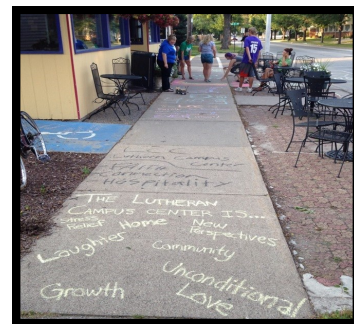 Lutheran Campus
Center
Hospitality
THE LUTHERAN
CAMPUS CENTER IS...
Stress Relief
Home
New Perspectives
Laughter
Community
Unconditional Love
Growth
15